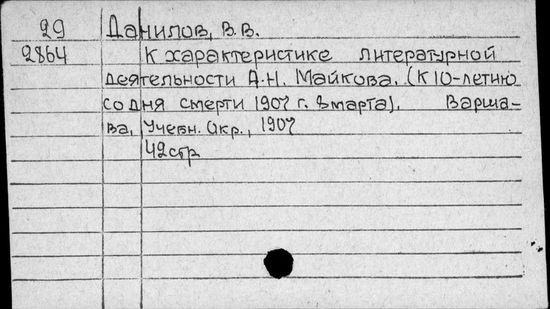 29 Данилов, В.В.
2864 К характеристике литературной
деятельности А.Н. Майкова. (К 10-летию
со дня смерти 1907 г. 8 марта). Варша-
ва, Учебн. Окр., 1907
42 стр